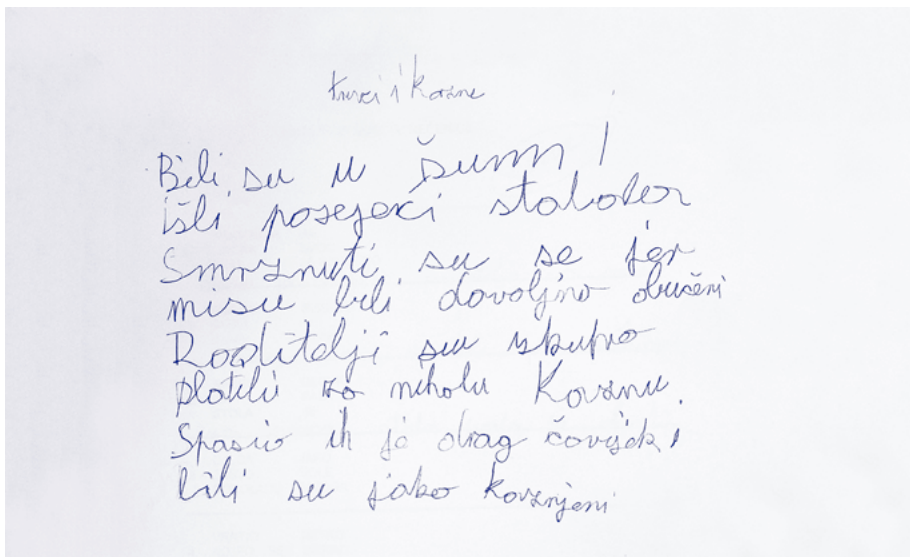 i kazne
Bili su u šumi
išli posejeći stabala
Smrznuti su se jer
nisu bili dovoljno obučeni
Roditelji su skupo
platili za niholu Kaznu.
Spasio ih je drag čovijek,
bili su jako kaznjeni